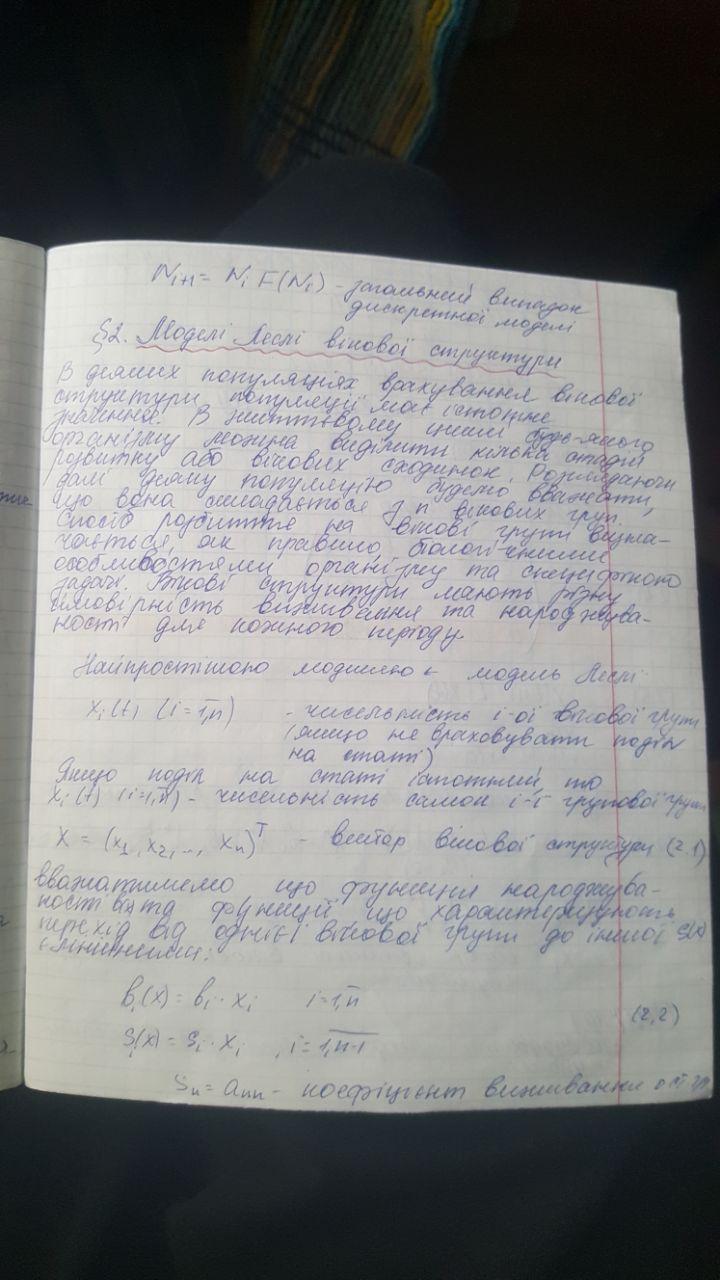 N_{i+1} = N_i F(N_i) - загальний випадок
дискретної моделі
§2. Моделі Леслі вікової структури
В деяких популяціях врахування вікової
структури популяції має істотне
значення. В життєвому циклі будь-якого
організму можна виділити кілька стадій
розвитку або вікових сходинок. Розглядаючи
далі деяку популяцію будемо вважати,
що вона складається з n вікових груп.
Спосіб розбиття на вікові групи визна-
чається, як правило, біологічними
особливостями організму та специфікою
задачі. Вікові структури мають різну
ймовірність виживання та народжува-
ності для кожного періоду
Найпростішою моделлю є модель Леслі
x_i(t) (i=1,n) - чисельність i-ої вікової групи
(якщо не враховувати поділ
на статі)
Якщо поділ на статі істотний, то
x_i(t) (i=1,n) - чисельність самок i-ї групової групи
X = (x_1, x_2, ..., x_n)^T - вектор вікової структури (2.1)
вважатимемо що функція народжува-
ності та функції що характеризують
перехід від однієї вікової групи до іншої S(x)
є лінійними:
b_i(x) = b_i · x_i i=1,n
(2,2)
S_i(x) = s_i · x_i , i=1,n-1
S_n = a_nn - коефіцієнт виживання